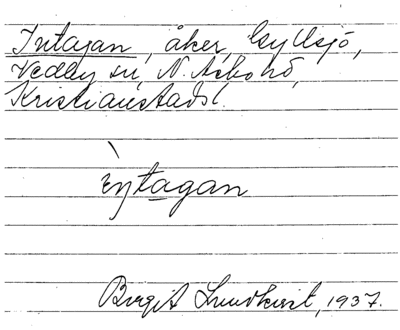 Intagan, åker, Gyllsjö,
Vedby sn, N. Åsbo hd,
Kristianstads l.
ìŋtagan
Birgit Lundkvist, 1937.